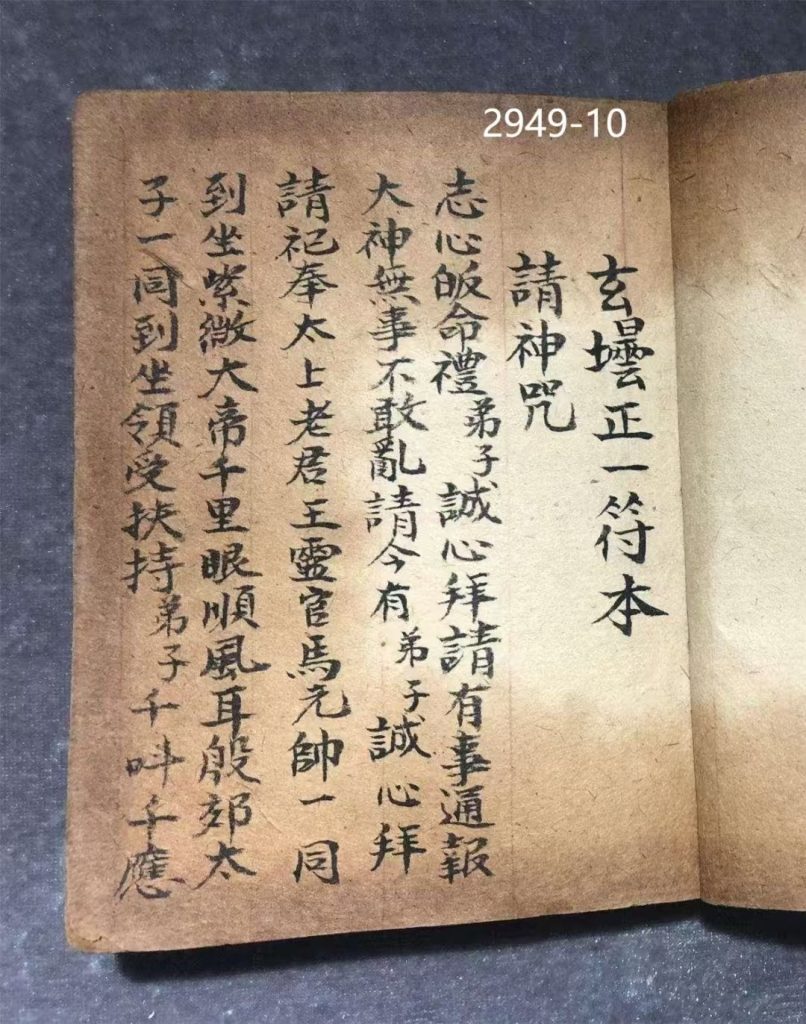 2949-10
玄壜正一符本
請神咒
志心皈命禮弟子誠心拜請有事通報
大神無事不敢亂請今有弟子誠心拜
請祀奉太上老君王靈官馬元帥一同
到坐紫微大帝千里眼順風耳殷郊太
子一同到坐領受扶持弟子千呌千應